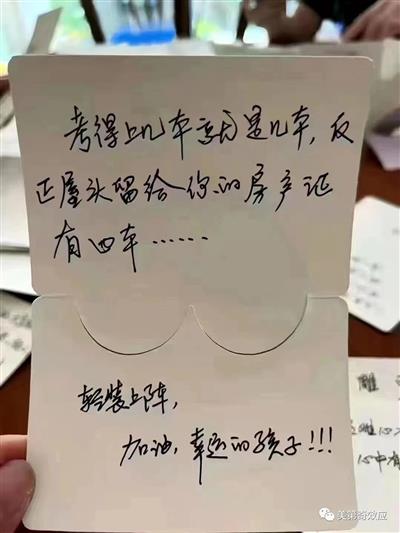 考得上几本就是几本,反
正屋头留给你的房产证
有四本……
轻装上阵,
加油,幸运的孩子!!!
雕
心中有
美第奇效应